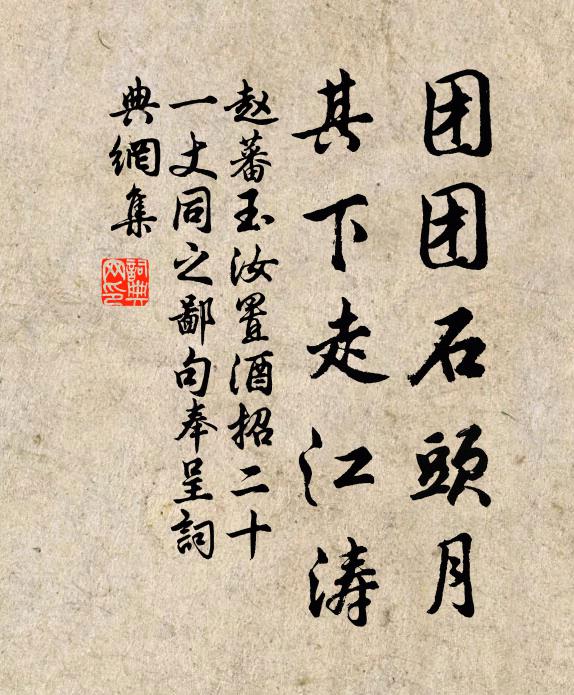 团团石頭月
其下走江涛
赵蕃玉汝置酒招二十
一丈同之鄙句奉呈詞
典網集
詞典网印